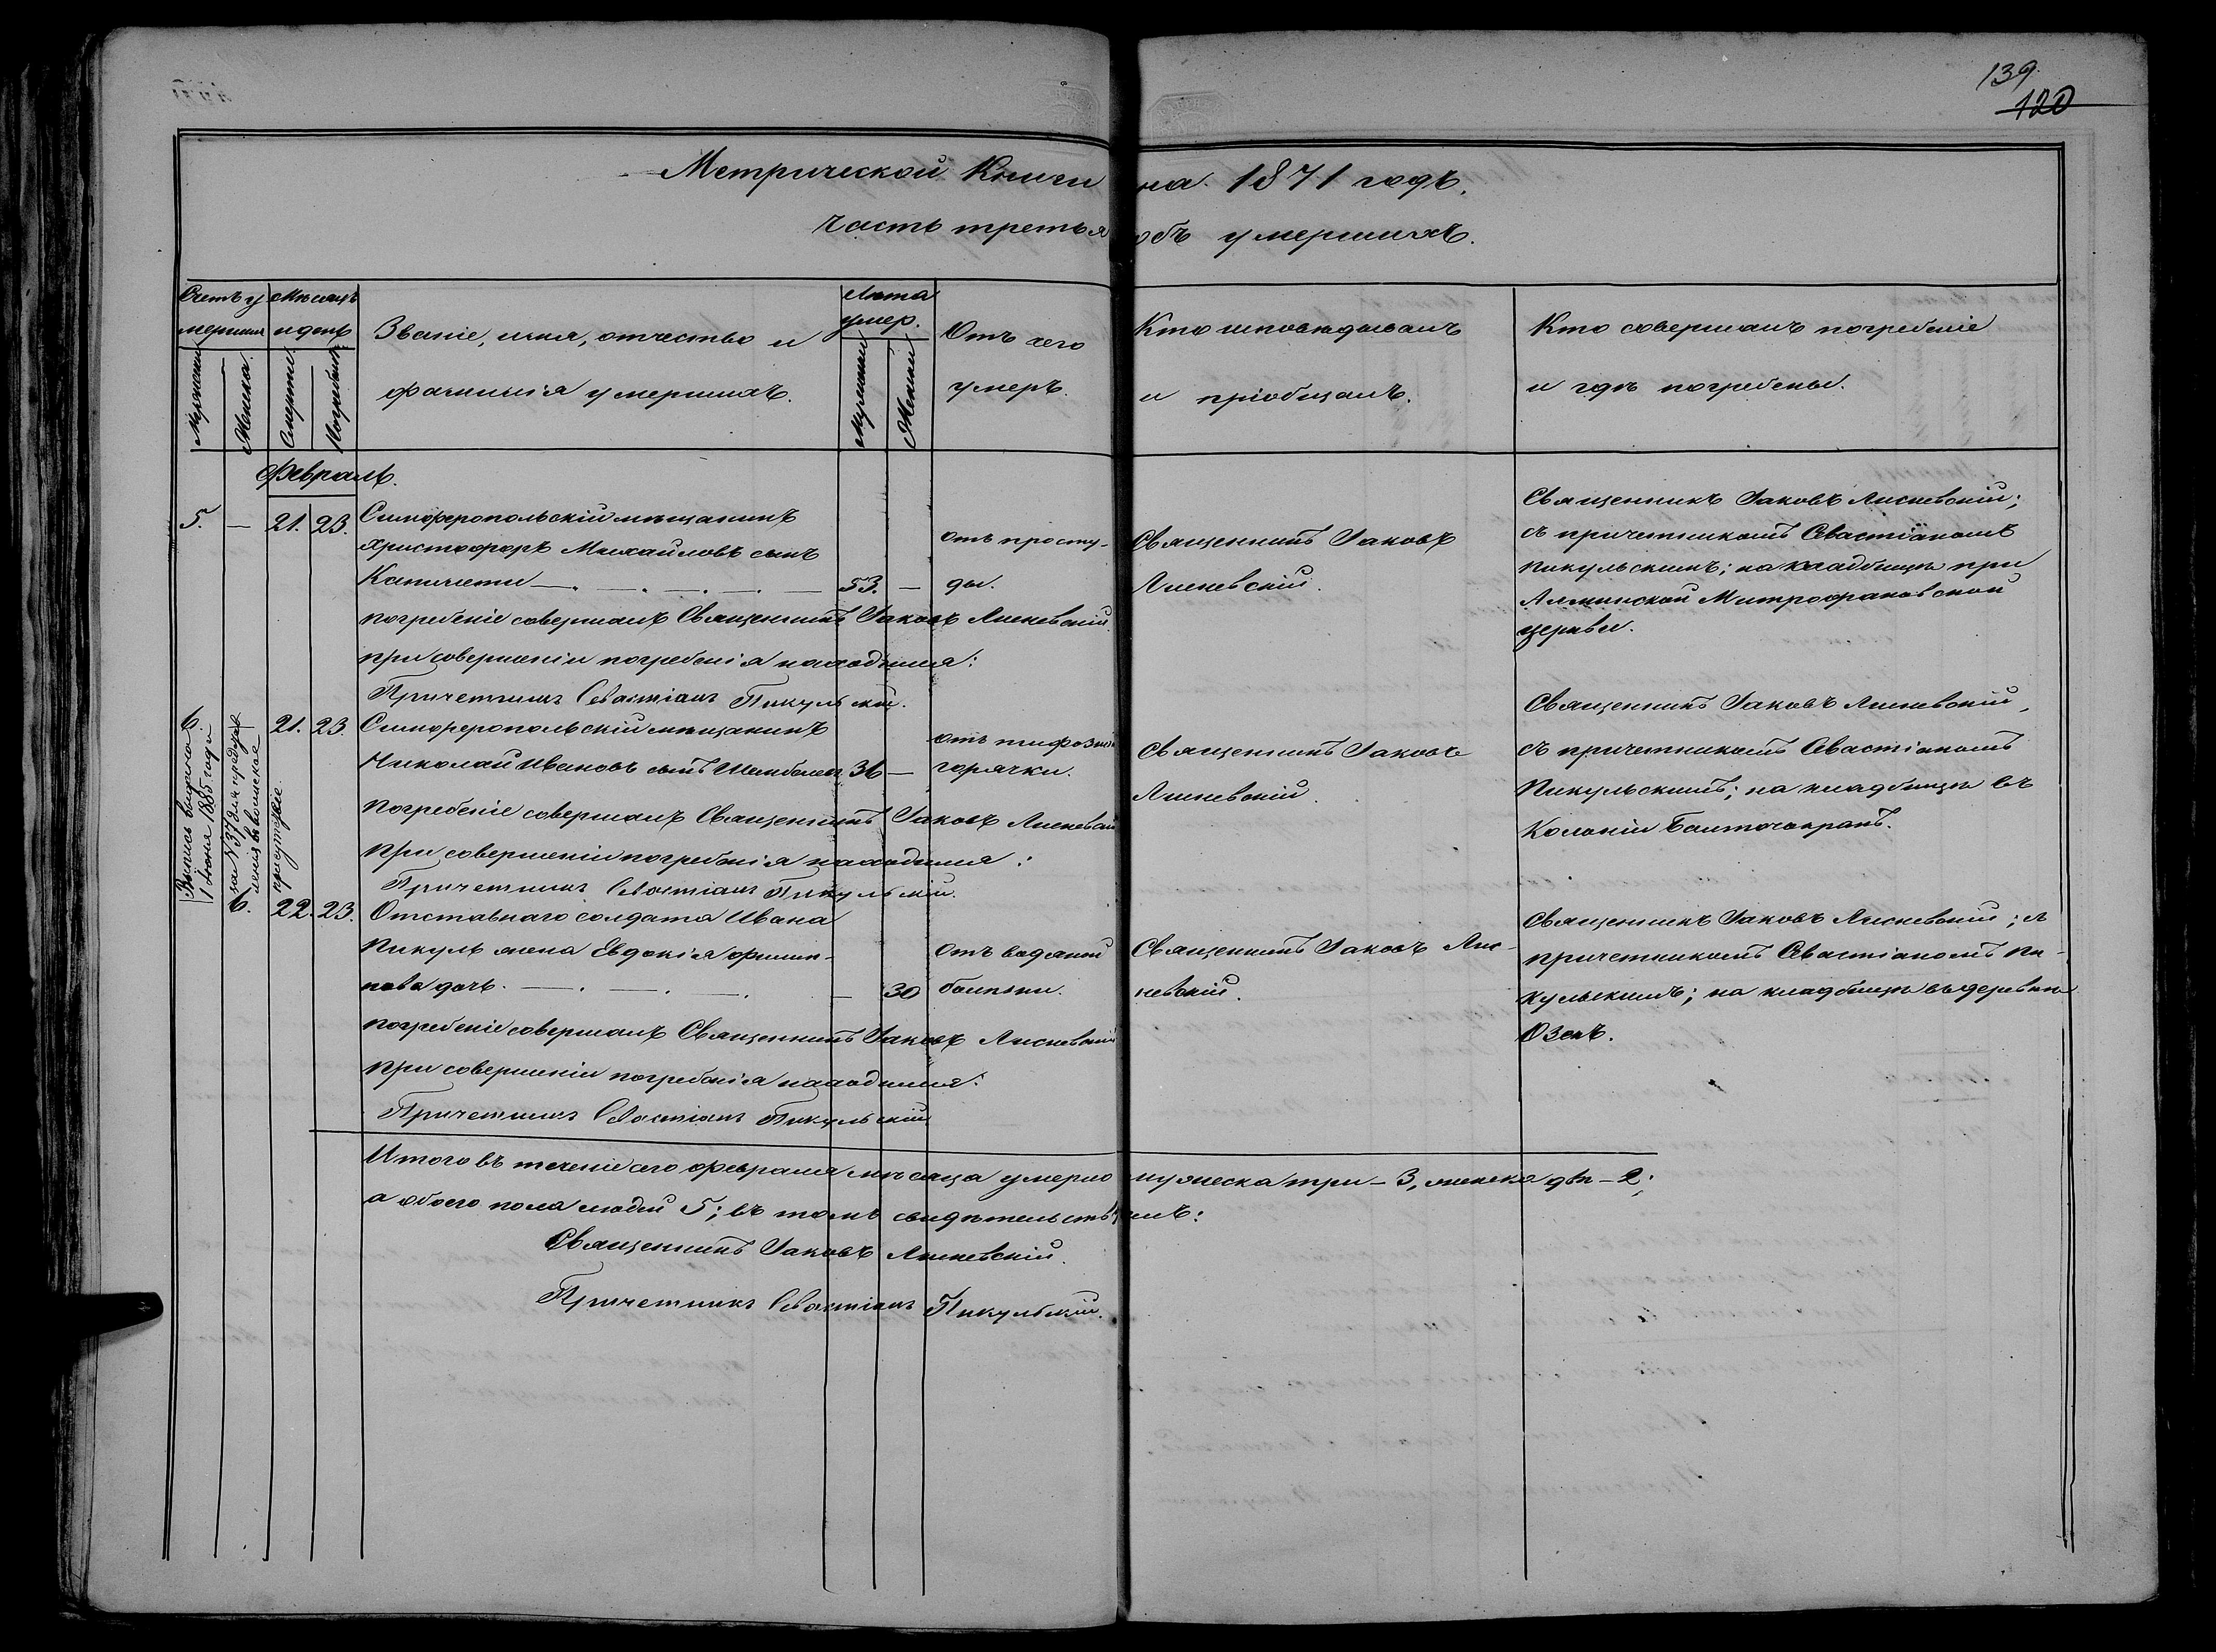 139
120
Метрической Книги на 1871 годъ.
часть третья объ умершихъ.
Счетъ умершихъ
Мужеска
Женска
Мѣсяцъ и день
Смерти
Погребенія
Званіе, имя, отчество и фамилія умершихъ.
Лѣта умер.
Мужеска
Женска
Отъ чего умеръ.
Кто исповѣдывалъ и пріобщалъ.
Кто совершалъ погребеніе и гдѣ погребены.
Февраль.
5. — 21. 23. Симферопольскій мѣщанинъ
Христофоръ Михайловъ сынъ
53. —
отъ просту-
ды.
Священникъ Іаковъ
Лисневскій.
Священникъ Іаковъ Лисневскій;
съ причетникомъ Севастіаномъ
Пикульскимъ; на кладбищѣ при
Алминской Митрофановской
церкви.
погребеніе совершалъ Священникъ Іаковъ Лисневскій
при совершеніи погребенія находился:
Причетникъ Севастіанъ Пикульскій.
6. 21. 23. Симферопольскій мѣщанинъ
Николай Ивановъ сынъ 36 —
отъ тифозной
горячки.
Священникъ Іаковъ
Лисневскій.
Священникъ Іаковъ Лисневскій,
съ причетникомъ Севастіаномъ
Пикульскимъ; на кладбищѣ въ
Колоніи
погребеніе совершалъ Священникъ Іаковъ Лисневскій
при совершеніи погребенія находился:
Причетникъ Севастіанъ Пикульскій.
Выпись выдана
1 Іюня 1885 года
за № 37 для представ
ленія въ воинское
присутствіе
6. 22. 23. Отставнаго солдата Ивана
Пикуль жена Евдокія Филип-
пова дочь. — 30
отъ водяной
болѣзни.
Священникъ Іаковъ Лис-
невскій.
Священникъ Іаковъ Лисневскій; съ
причетникомъ Севастіаномъ Пи-
кульскимъ; на кладбищѣ въ деревнѣ
Озенъ.
погребеніе совершалъ Священникъ Іаковъ Лисневскій
при совершеніи погребенія находился:
Причетникъ Севастіанъ Пикульскій
Итого въ теченіе сего февраля мѣсяца умерло мужеска три – 3, женска двѣ – 2;
а обоего пола людей 5; въ томъ свидѣтельствуемъ:
Священникъ Іаковъ Лисневскій.
Причетникъ Севастіанъ Пикульскій.